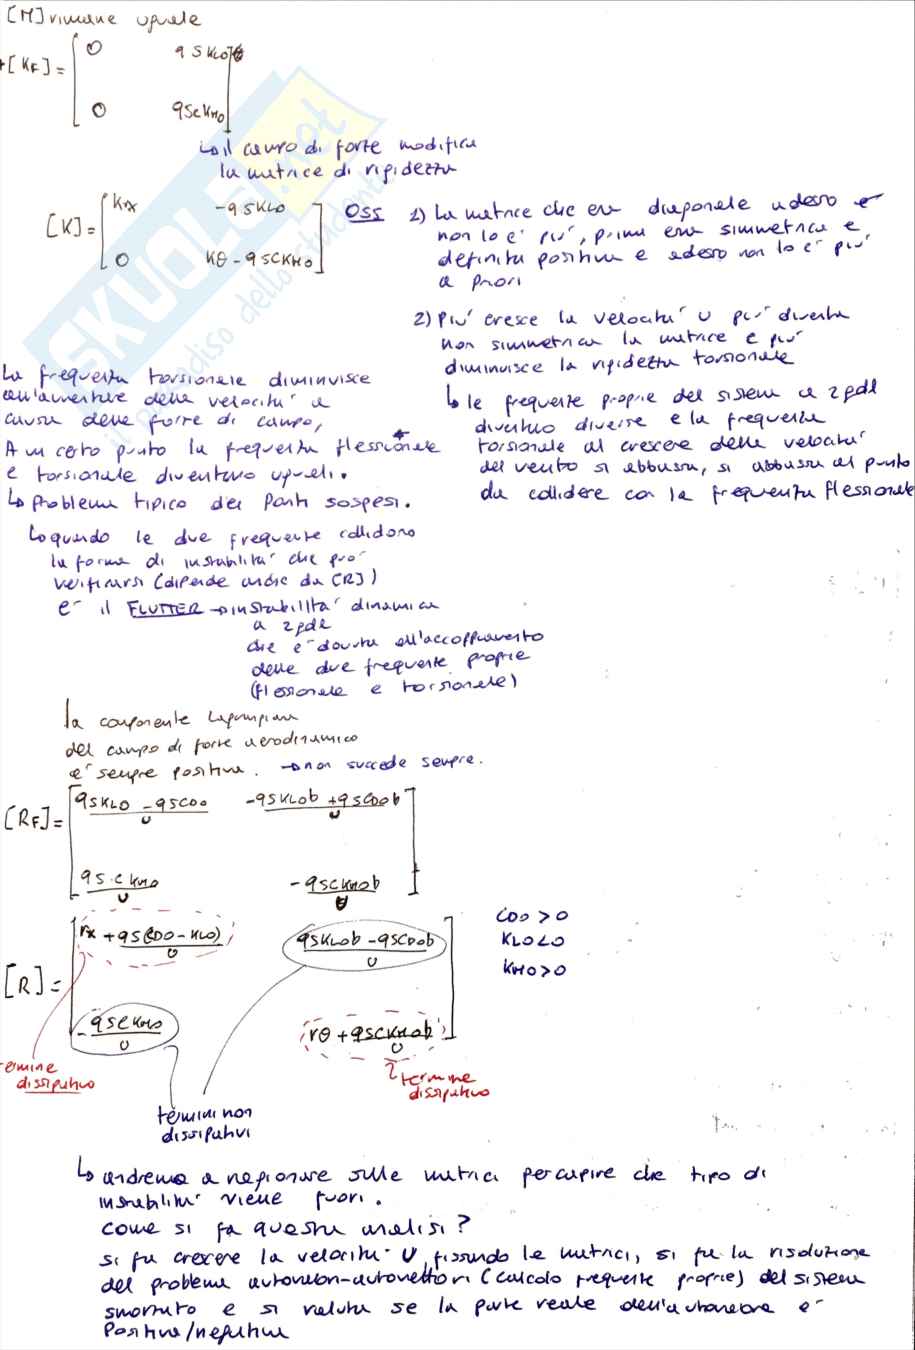 [M] rimane uguale
+[KF] = [ 0 qSKLO
0 qScKMO ]
↳ il campo di forze modifica
la matrice di rigidezza
[K] = [ Kx -qSKLO
0 Kθ - qSCKMO ]
OSS 1) La matrice che era diagonale adesso
non lo è più, prima era simmetrica e
definita positiva e adesso non lo è più
a priori
2) Più cresce la velocità U più diventa
non simmetrica la matrice e più
diminuisce la rigidezza torsionale
↳ le frequenze proprie del sistema a 2gdl
diventano diverse e la frequenza
torsionale al crescere della velocità
del vento si abbassa, si abbassa al punto
da collidere con la frequenza flessionale
La frequenza torsionale diminuisce
all'aumentare della velocità a
causa delle forze di campo,
A un certo punto la frequenza flessionale
e torsionale diventano uguali.
↳ Problema tipico dei Ponti sospesi.
↳ quando le due frequenze collidono
la forma di instabilità che può
verificarsi (dipende anche da [R])
è il FLUTTER → instabilità dinamica
a 2gdl
che è dovuta all'accoppiamento
delle due frequenze proprie
(flessionale e torsionale)
la componente Lagrangiana
del campo di forze aerodinamico
è sempre positiva. → non succede sempre.
[RF] = [ qSKLO - qSCDO / U -qSKLOb + qSCDOb / U
qS·cKMO / U -qSCKMOb / U ]
CDO > 0
KLO < 0
KMO > 0
[R] = [ rx + qS(CDO - KLO) / U qSKLOb - qSCDOb / U
- qScKMO / U rθ + qSCKMOb / U ]
termine
dissipativo
termine
dissipativo
termini non
dissipativi
↳ andremo a ragionare sulle matrici per capire che tipo di
instabilità viene fuori.
Come si fa questa analisi?
si fa crescere la velocità U, fissando le matrici, si fa la risoluzione
del problema autovalori-autovettori (calcolo frequenze proprie) del sistema
smorzato e si valuta se la parte reale dell'autovalore è
Positiva/negativa
SKUOLA.net
il paradiso dello studente